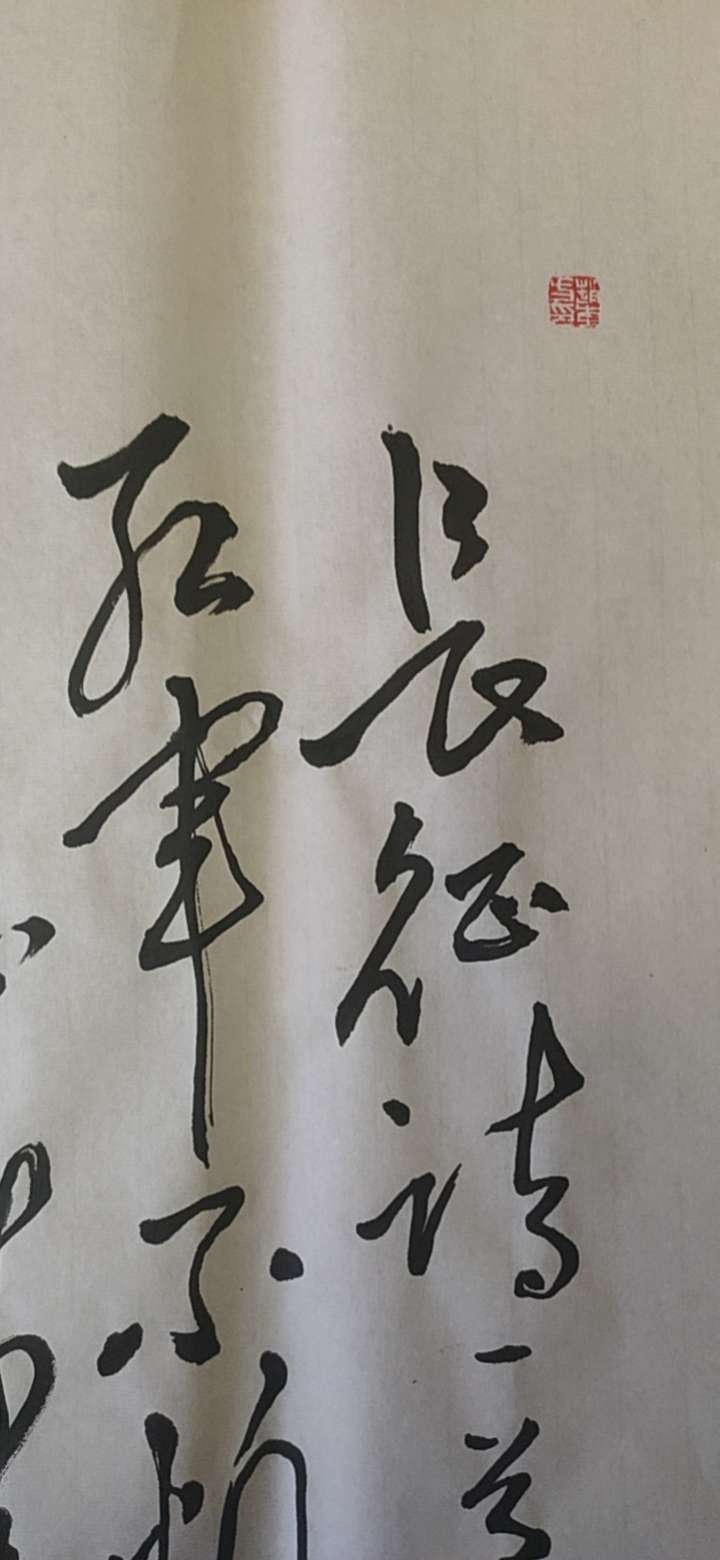 長征詩一首
紅軍不怕